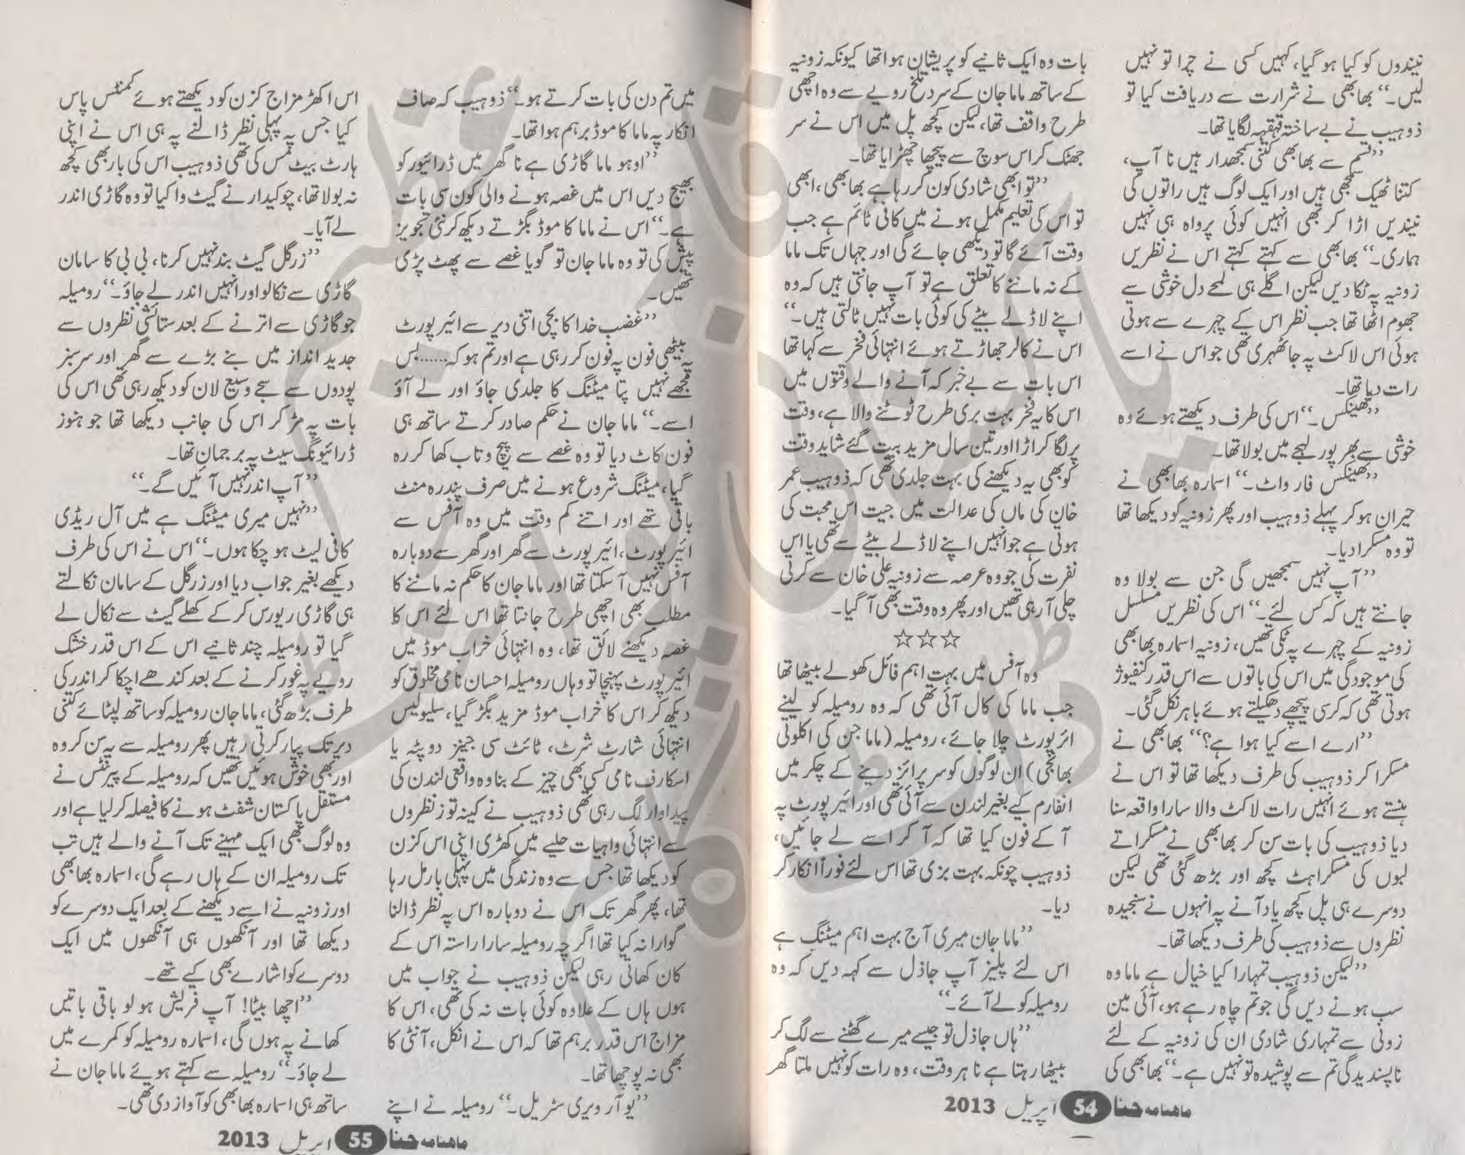 نیندوں کو کیا ہو گیا، کہیں کسی نے چرا تو نہیں
لیں۔‘‘ بھابھی نے شرارت سے دریافت کیا تو
ذوہیب نے بے ساختہ قہقہہ لگایا تھا۔
’’قسم سے بھابھی کتنی سمجھدار ہیں نا آپ،
کتنا ٹھیک سمجھی ہیں اور ایک لوگ ہیں راتوں کی
نیندیں اڑا کر بھی انہیں کوئی پرواہ ہی نہیں
ہماری۔‘‘ بھابھی سے کہتے کہتے اس نے نظریں
زونیہ پہ ٹکا دیں لیکن اگلے ہی لمحے دل خوشی سے
جھوم اٹھا تھا جب نظر اس کے چہرے سے ہوئی
ہوئی اس لاکٹ پہ جا ٹھہری تھی جو اس نے اسے
رات دیا تھا۔
’’تھینکس۔‘‘ اس کی طرف دیکھتے ہوئے وہ
خوشی سے بھر پور لہجے میں بولا تھا۔
’’تھینکس فار واٹ۔‘‘ اسمارہ بھابھی نے
حیران ہو کر پہلے ذوہیب اور پھر زونیہ کو دیکھا تھا
تو وہ مسکرا دیا۔
’’آپ نہیں سمجھیں گی جن سے بولا وہ
جانتے ہیں کہ کس لئے۔‘‘ اس کی نظریں مسلسل
زونیہ کے چہرے پہ ٹکی تھیں، زونیہ اسمارہ بھابھی
کی موجودگی میں اس کی باتوں سے اس قدر کنفیوژ
ہوتی تھی کہ کرسی پیچھے دھکیلتے ہوئے باہر نکل گئی۔
’’ارے اسے کیا ہوا ہے؟‘‘ بھابھی نے
مسکرا کر ذوہیب کی طرف دیکھا تھا تو اس نے
ہنستے ہوئے انہیں رات لاکٹ والا سارا واقعہ سنا
دیا ذوہیب کی بات سن کر بھابھی نے مسکراتے
لبوں کی مسکراہٹ کچھ اور بڑھ گئی تھی لیکن
دوسرے ہی پل کچھ یاد آنے پہ انہوں نے سنجیدہ
نظروں سے ذوہیب کی طرف دیکھا تھا۔
’’لیکن ذوہیب تمہارا کیا خیال ہے ماما وہ
سب ہونے دیں گی جو تم چاہ رہے ہو، آئی مین
زوئی سے تمہاری شادی ان کی زونیہ کے لئے
ناپسندیدگی تم سے پوشیدہ تو نہیں ہے۔‘‘ بھابھی کی
بات وہ ایک ثانیے کو پریشان ہوا تھا کیونکہ زونیہ
کے ساتھ ماما جان کے سرد تلخ رویے سے وہ اچھی
طرح واقف تھا، لیکن کچھ پل میں اس نے سر
جھٹک کر اس سوچ سے پیچھا چھڑایا تھا۔
’’تو ابھی شادی کون کر رہا ہے بھابھی، ابھی
تو اس کی تعلیم مکمل ہونے میں کافی ٹائم ہے جب
وقت آئے گا تو دیکھی جائے گی اور جہاں تک ماما
کے نہ ماننے کا تعلق ہے تو آپ جانتی ہیں کہ وہ
اپنے لاڈلے بیٹے کی کوئی بات نہیں ٹالتی ہیں۔‘‘
اس نے کالر جھاڑتے ہوئے انتہائی فخر سے کہا تھا
اس بات سے بے خبر کہ آنے والے وقتوں میں
اس کا یہ فخر بہت بری طرح ٹوٹنے والا ہے، وقت
پر لگا کر اڑا اور تین سال مزید بیت گئے شاید وقت
کو بھی یہ دیکھنے کی بہت جلدی تھی کہ ذوہیب عمر
خان کی ماں کی عدالت میں جیت اس محبت کی
ہوتی ہے جو انہیں اپنے لاڈلے بیٹے سے تھی یا اس
نفرت کی جو وہ عرصہ سے زونیہ علی خان سے کرتی
چلی آ رہی تھیں اور پھر وہ وقت بھی آ گیا۔
☆☆☆
وہ آفس میں بہت اہم فائل کھولے بیٹھا تھا
جب ماما کی کال آئی تھی کہ وہ رومیلہ کو لینے
ائیر پورٹ چلا جائے، رومیلہ (ماما جن کی اکلوتی
بھانجی) ان لوگوں کو سرپرائز دینے کے چکر میں
انفارم کیے بغیر لندن سے آئی تھی اور ائیر پورٹ پہ
آ کے فون کیا تھا کہ آ کر اسے لے جائیں،
ذوہیب چونکہ بہت بزی تھا اس لئے فوراً انکار کر
دیا۔
’’ماما جان میری آج بہت اہم میٹنگ ہے
اس لئے پلیز آپ جاذل سے کہہ دیں کہ وہ
رومیلہ کو لے آئے۔‘‘
’’ہاں جاذل تو جیسے میرے گھٹنے سے لگ کر
بیٹھا رہتا ہے نا ہر وقت، وہ رات کو نہیں ملتا گھر
ماھنامہ حنا 54 اپریل 2013
میں تم دن کی بات کرتے ہو۔‘‘ ذوہیب کہ صاف
انکار پہ ماما کا موڈ برہم ہوا تھا۔
’’اوہو ماما گاڑی ہے نا گھر میں ڈرائیور کو
بھیج دیں اس میں غصہ ہونے والی کون سی بات
ہے۔‘‘ اس نے ماما کا موڈ بگڑتے دیکھ کر نئی تجویز
پیش کی تو وہ ماما جان تو گویا غصے سے پھٹ پڑی
تھیں۔
’’غضب خدا کا بچی اتنی دیر سے ائیر پورٹ
پہ بیٹھی فون پہ فون کر رہی ہے اور تم ہو کہ...... بس
مجھے نہیں پتا میٹنگ کا جلدی جاؤ اور لے آؤ
اسے۔‘‘ ماما جان نے حکم صادر کرتے ساتھ ہی
فون کاٹ دیا تو وہ غصے سے پیچ و تاب کھا کر رہ
گیا، میٹنگ شروع ہونے میں صرف پندرہ منٹ
باقی تھے اور اتنے کم وقت میں وہ آفس سے
ائیر پورٹ، ائیر پورٹ سے گھر اور گھر سے دوبارہ
آفس نہیں آ سکتا تھا اور ماما جان کا حکم نہ ماننے کا
مطلب بھی اچھی طرح جانتا تھا اس لئے اس کا
غصہ دیکھنے لائق تھا، وہ انتہائی خراب موڈ میں
ائیر پورٹ پہنچا تو وہاں رومیلہ احسان نامی مخلوق کو
دیکھ کر اس کا خراب موڈ مزید بگڑ گیا، سلیولیس
انتہائی شارٹ شرٹ، ٹائٹ سی جینز دوپٹہ یا
اسکارف نامی کسی بھی چیز کے بنا وہ واقعی لندن کی
پیداوار لگ رہی تھی ذوہیب نے کینہ توز نظروں
سے انتہائی واہیات حلیے میں کھڑی اپنی اس کزن
کو دیکھا تھا جس سے وہ زندگی میں پہلی بار مل رہا
تھا، پھر گھر تک اس نے دوبارہ اس پہ نظر ڈالنا
گوارا نہ کیا تھا اگرچہ رومیلہ سارا راستہ اس کے
کان کھاتی رہی لیکن ذوہیب نے جواب میں
ہوں ہاں کے علاوہ کوئی بات نہ کی تھی، اس کا
مزاج اس قدر برہم تھا کہ اس نے انکل، آنٹی کا
بھی نہ پوچھا تھا۔
’’یو آر ویری سٹریل۔‘‘ رومیلہ نے اپنے
اس اکھڑ مزاج کزن کو دیکھتے ہوئے کمنٹس پاس
کیا جس پہ پہلی نظر ڈالنے پہ ہی اس نے اپنی
ہارٹ بیٹ مس کی تھی ذوہیب اس کی بار بھی کچھ
نہ بولا تھا، چوکیدار نے گیٹ وا کیا تو وہ گاڑی اندر
لے آیا۔
’’زرگل گیٹ بند نہیں کرنا، بی بی کا سامان
گاڑی سے نکالو اور انہیں اندر لے جاؤ۔‘‘ رومیلہ
جو گاڑی سے اترنے کے بعد ستائشی نظروں سے
جدید انداز میں بنے بڑے سے گھر اور سرسبز
پودوں سے سجے وسیع لان کو دیکھ رہی تھی اس کی
بات پہ مڑ کر اس کی جانب دیکھا تھا جو ہنوز
ڈرائیونگ سیٹ پہ برجمان تھا۔
’’آپ اندر نہیں آئیں گے۔‘‘
’’نہیں میری میٹنگ ہے میں آل ریڈی
کافی لیٹ ہو چکا ہوں۔‘‘ اس نے اس کی طرف
دیکھے بغیر جواب دیا اور زرگل کے سامان نکالتے
ہی گاڑی ریورس کر کے کھلے گیٹ سے نکال لے
گیا تو رومیلہ چند ثانیے اس کے اس قدر خشک
رویے پہ غور کرنے کے بعد کندھے اچکا کر اندر کی
طرف بڑھ گئی، ماما جان رومیلہ کو ساتھ لپٹائے کتنی
دیر تک پیار کرتی رہیں پھر رومیلہ سے یہ سن کر وہ
اور بھی خوش ہوئیں تھیں کہ رومیلہ کے پیرنٹس نے
مستقل پاکستان شفٹ ہونے کا فیصلہ کر لیا ہے اور
وہ لوگ بھی ایک مہینے تک آنے والے ہیں تب
تک رومیلہ ان کے ہاں رہے گی، اسمارہ بھابھی
اور زونیہ نے اسے دیکھنے کے بعد ایک دوسرے کو
دیکھا تھا اور آنکھوں ہی آنکھوں میں ایک
دوسرے کو اشارے بھی کیے تھے۔
’’اچھا بیٹا! آپ فریش ہو لو باقی باتیں
کھانے پہ ہوں گی، اسمارہ رومیلہ کو کمرے میں
لے جاؤ۔‘‘ رومیلہ سے کہتے ہوئے ماما جان نے
ساتھ ہی اسمارہ بھابھی کو آواز دی تھی۔
ماھنامہ حنا 55 اپریل 2013